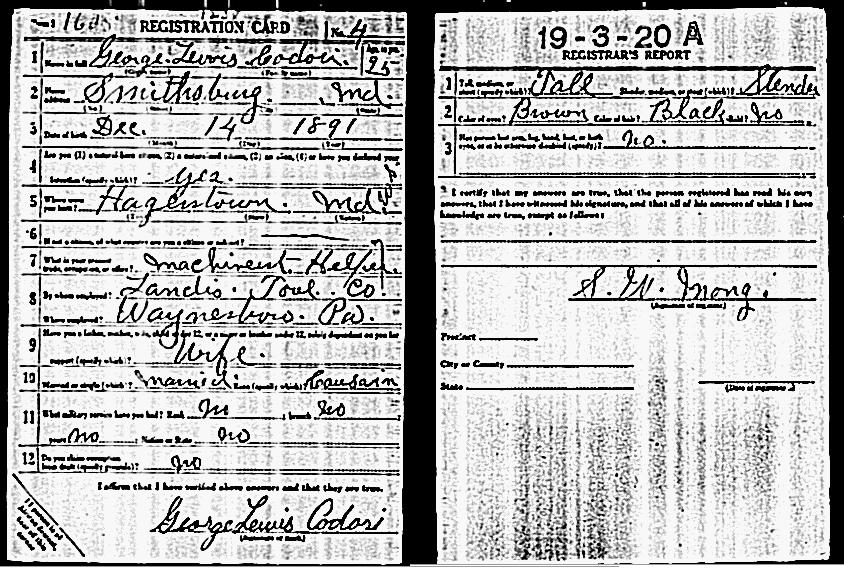 REGISTRATION CARD No. 4
1 Name in full George Lewis Codori Age, in yrs. 25
(Given name) (Family name)
2 Home address Smithsburg, Md.
(No.) (Street) (State)
3 Date of birth Dec. 14 1891
(Month) (Day) (Year)
4 Are you (1) a natural-born citizen, (2) a naturalized citizen, (3) an alien, (4) or have you declared your
intention (specify which)? yes.
5 Where were you born? Hagerstown. Md.
(Town) (State) (Nation)
6 If not a citizen, of what country are you a citizen or subject?
7 What is your present trade, occupation, or office? Machinest Helper.
8 By whom employed? Landis. Tool. Co.
Where employed? Waynesboro. Pa.
9 Have you a father, mother, wife, child under 12, or a sister or brother under 12, solely dependent on you for
support (specify which)? Wife.
10 Married or single (which)? married Race (specify which)? Causain
11 What military service have you had? Rank No ; branch No
years No ; Nation or State No
12 Do you claim exemption from draft (specify grounds)? No
I affirm that I have verified above answers and that they are true.
George Lewis Codori
19-3-20 A
REGISTRAR'S REPORT
1 Tall, medium, or short (specify which)? Tall Slender, medium, or stout (which)? Slender
2 Color of eyes? Brown Color of hair? Black Bald? No
3 Has person lost arm, leg, hand, foot, or both eyes, or is he otherwise disabled (specify)? No.
I certify that my answers are true, that the person registered has read his own
answers, that I have witnessed his signature, and that all of his answers of which I have
knowledge are true, except as follows:
(Signature of registrar)
Precinct
City or County
State
(Date of registration)